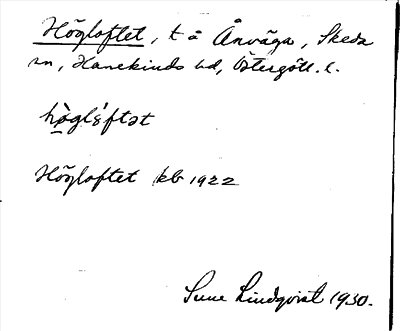 Högloftet, t å Ånväga, Skeda
sn, Hanekinds hd, Östergötl. l.
hö̀glòftət
Högloftet kb 1922
Sune Lindqvist 1930.